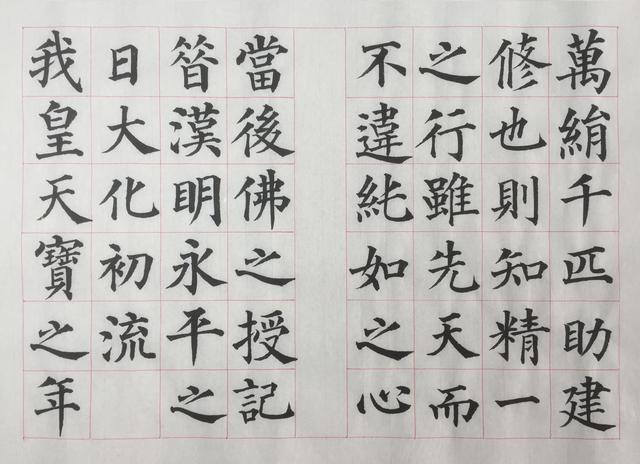 萬絹千匹助建
修也則知精一
之行雖先天而
不違純如之心
當後佛之授記
昔漢明永平之
日大化初流
我皇天寶之年